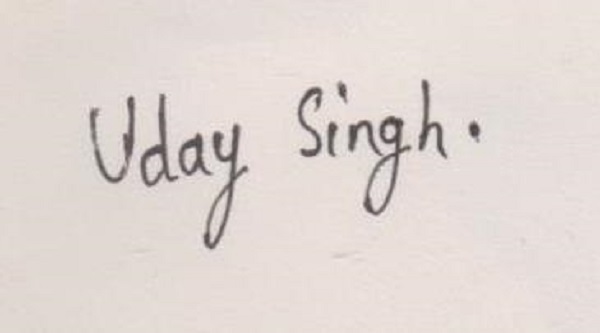 Uday Singh.